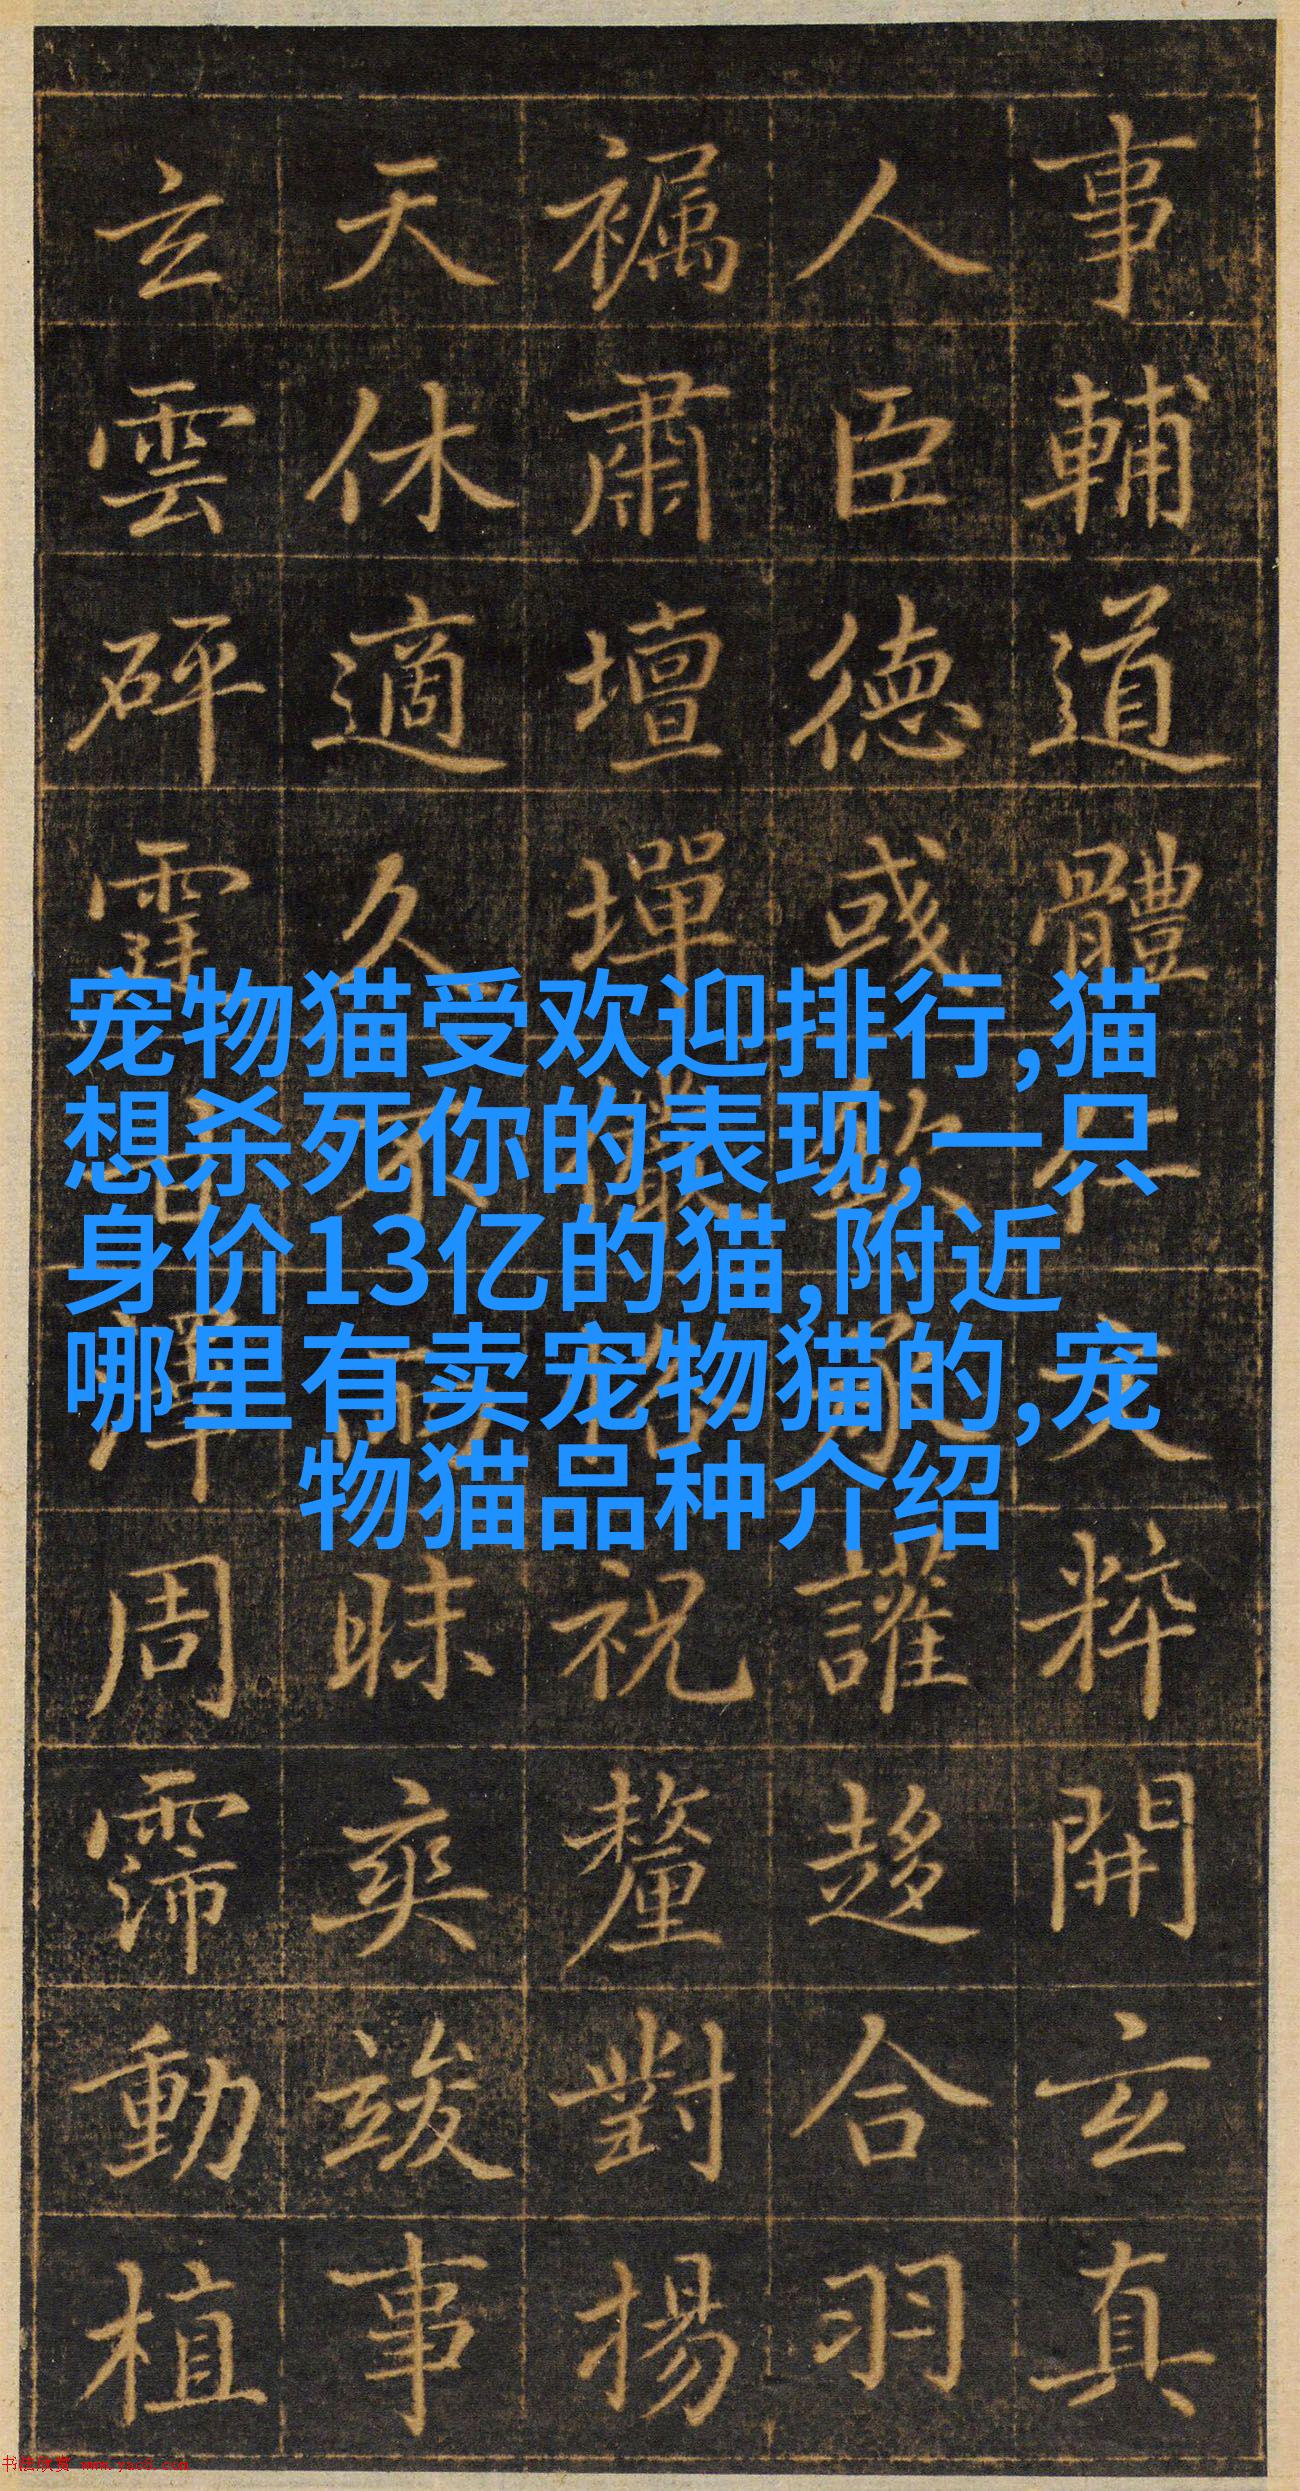 事輔道體仁文粹開玄真
人臣德或讙趍合羽
肅壇墠祝釐對揚
天休適久不雨昧爽竣事
玄雲砰霆澤周霈動植
宠物猫受欢迎排行,猫
想杀死你的表现,一只
身价13亿的猫,附近
哪里有卖宠物猫的,宠
物猫品种介绍
书法欣赏 www.yac8.com